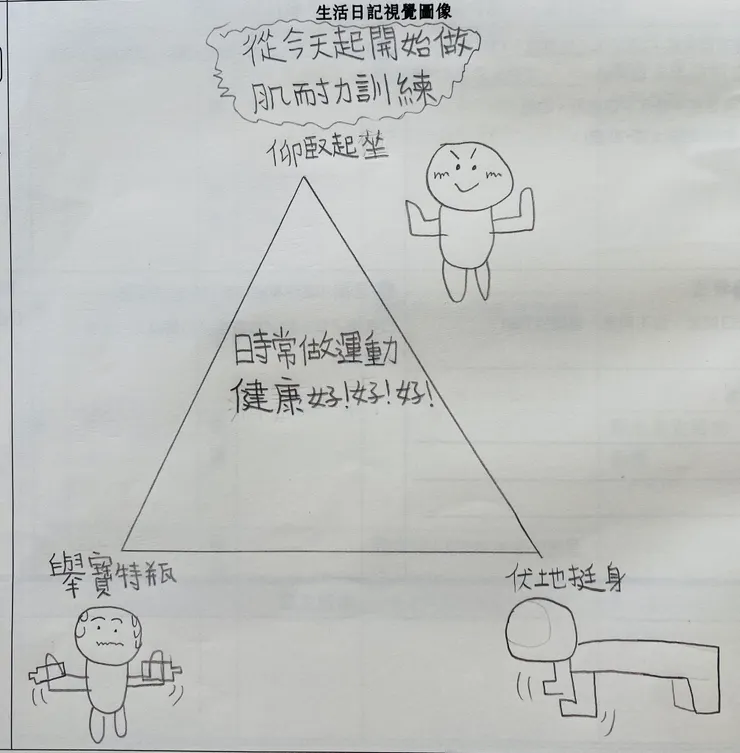 生活日記視覺圖像
從今天起開始做
肌耐力訓練
仰臥起坐
時常做運動
健康好!好!好!
舉寶特瓶
伏地挺身